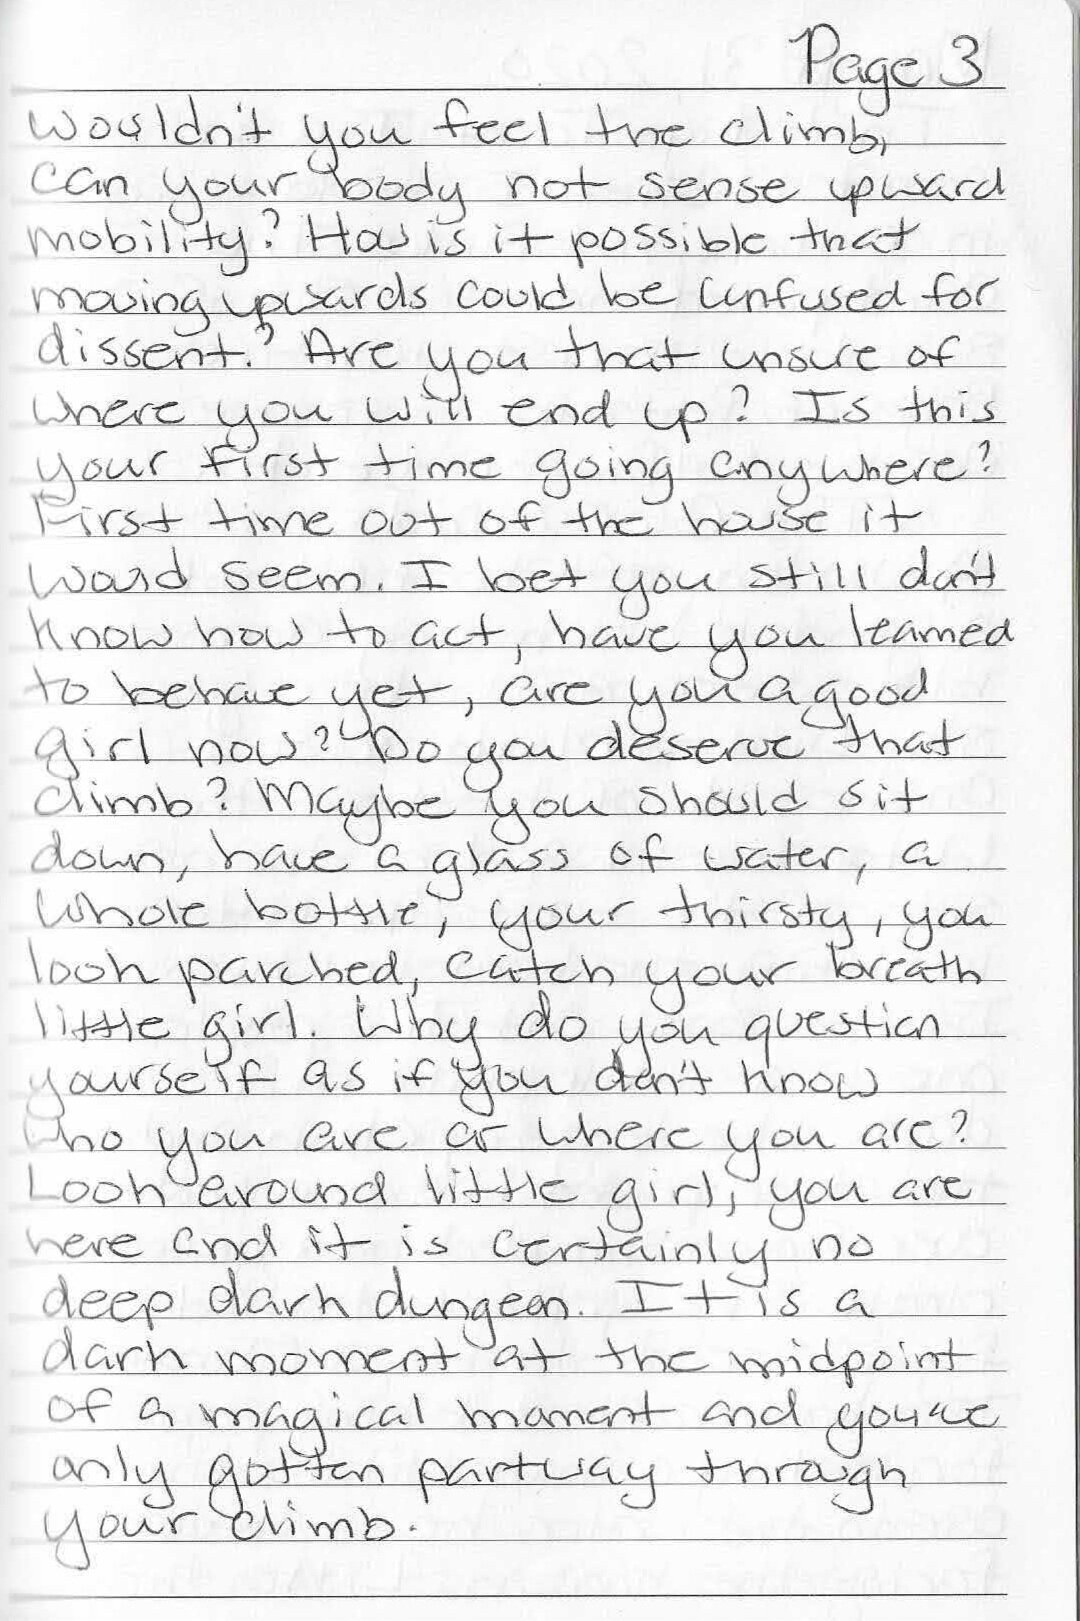 Page 3
Wouldn't you feel the climb,
can your body not sense upward
mobility? How is it possible that
moving upwards could be confused for
dissent? Are you that unsure of
where you will end up? Is this
your first time going anywhere?
First time out of the house it
would seem. I bet you still don't
know how to act, have you learned
to behave yet, are you a good
girl now? Do you deserve that
climb? Maybe you should sit
down, have a glass of water, a
whole bottle, your thirsty, you
look parched, catch your breath
little girl. Why do you question
yourself as if you don't know
who you are or where you are?
Look around little girl, you are
here and it is certainly no
deep dark dungeon. It is a
dark moment at the midpoint
of a magical moment and you've
only gotten partway through
your climb.